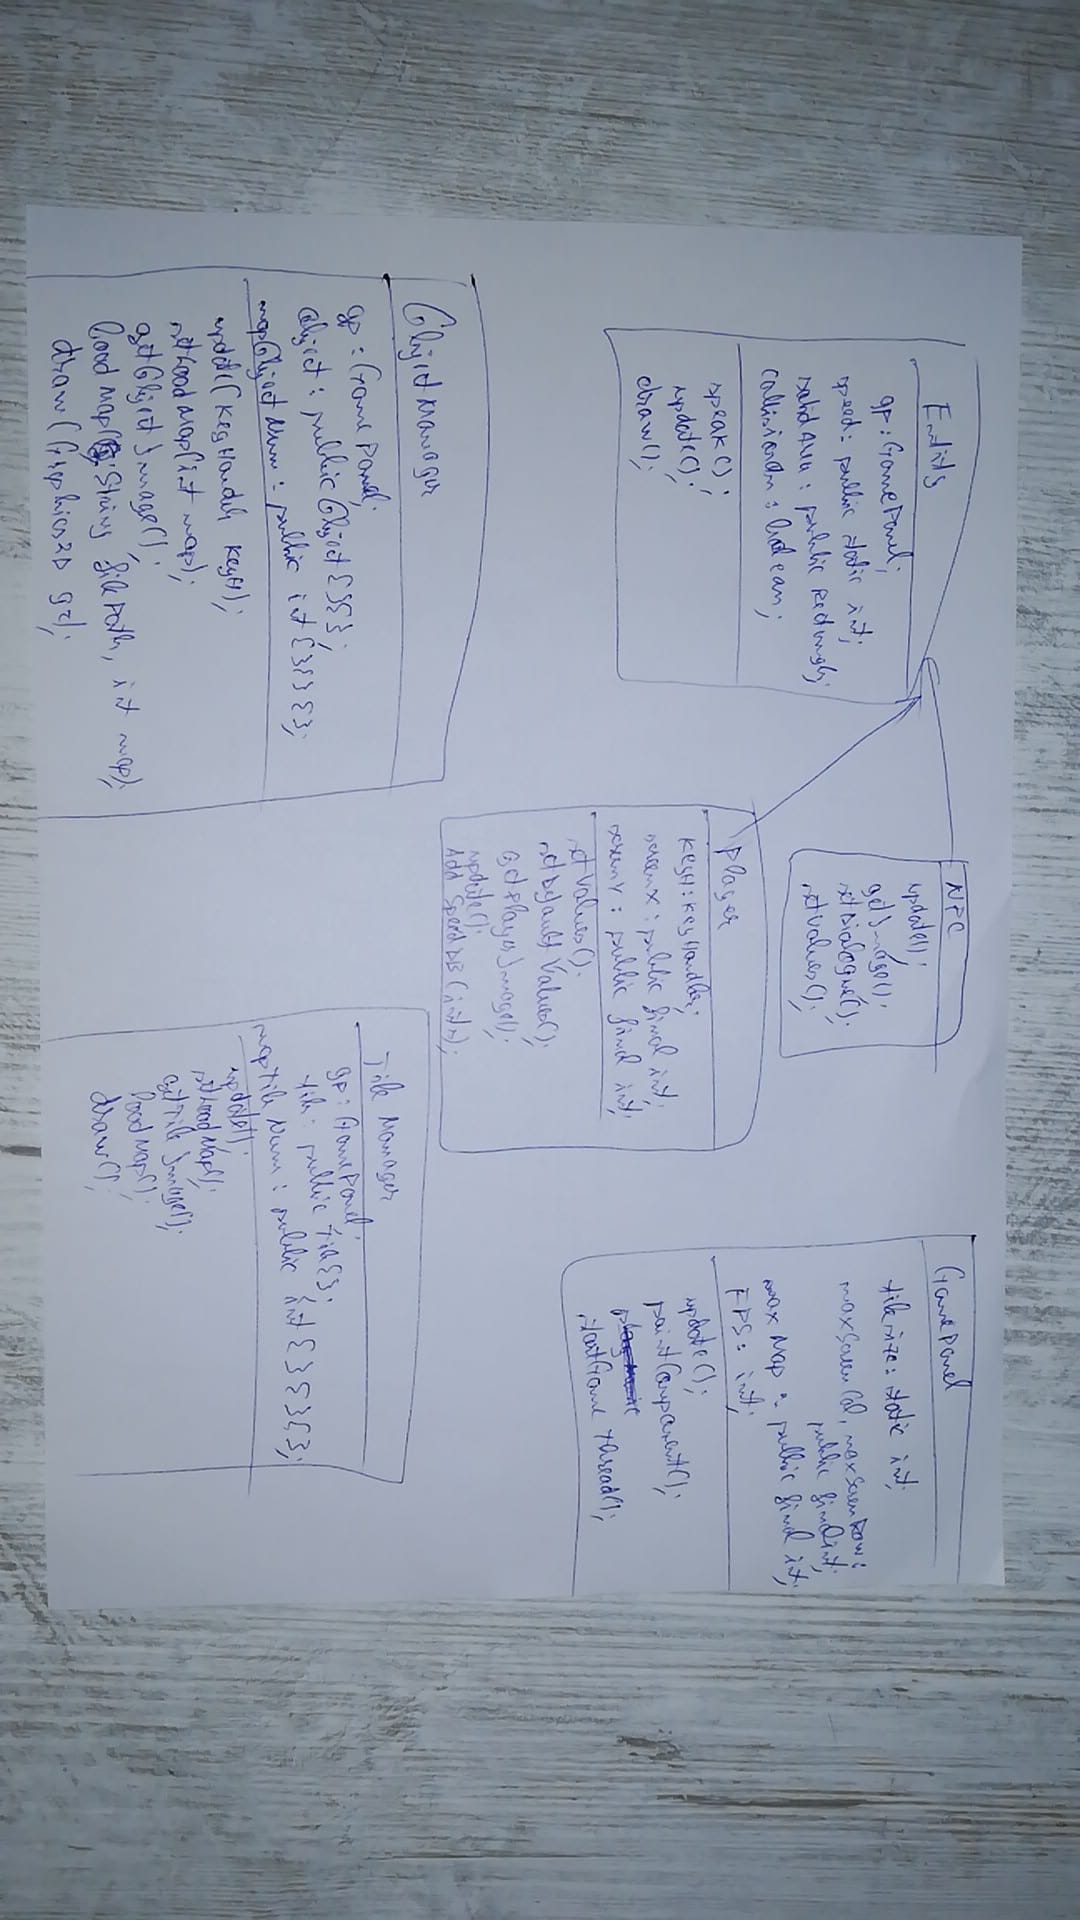 Entity
gp : GamePanel;
speed : public static int;
solidArea : public Rectangle;
collisionOn : boolean;
speak();
update();
draw();
NPC
update();
getImage();
setDialogue();
setValues();
Player
KeyH : KeyHandler;
screenX : public final int;
screenY : public final int;
setValues();
setDefaultValues();
getPlayerImage();
update();
Add Speed
GamePanel
tileSize : static int;
maxScreenCol, maxScreenRow :
public final int;
maxMap : public final int;
FPS : int;
update();
paintComponent();
startGameThread();
ObjectManager
gp : GamePanel;
Object : public Object{}{};
mapObjectNum : public int{}{}{};
update(KeyHandler KeyH);
setLoadMap(int map);
getObjectImage();
loadMap(String filePath, int map);
draw(Graphics2D g2);
Tile Manager
gp : GamePanel;
tile : public tile{};
mapTileNum : public int{}{}{};
update();
setLoadMap();
getTileImage();
loadMap();
draw();